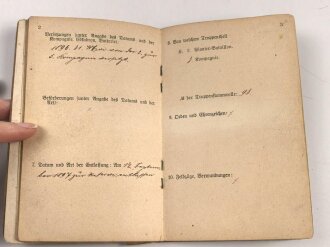 2
Versetzungen (unter Angabe des Datums und der
Kompagnie, Eskadron, Batterie).
1896 31.
5. Kompagnie versetzt
Beförderungen (unter Angabe des Datums und der
Art)
7. Datum und Art der Entlassung: Am 12. Septem
ber 1897 zur Reserve entlassen
3
8. Von welchem Truppenteil
K. 2. Pionier-Bataillon.
Kompagnie.
Nr der Truppenstammrolle: 91
9. Orden und Ehrenzeichen:
10. Feldzüge, Verwundungen: